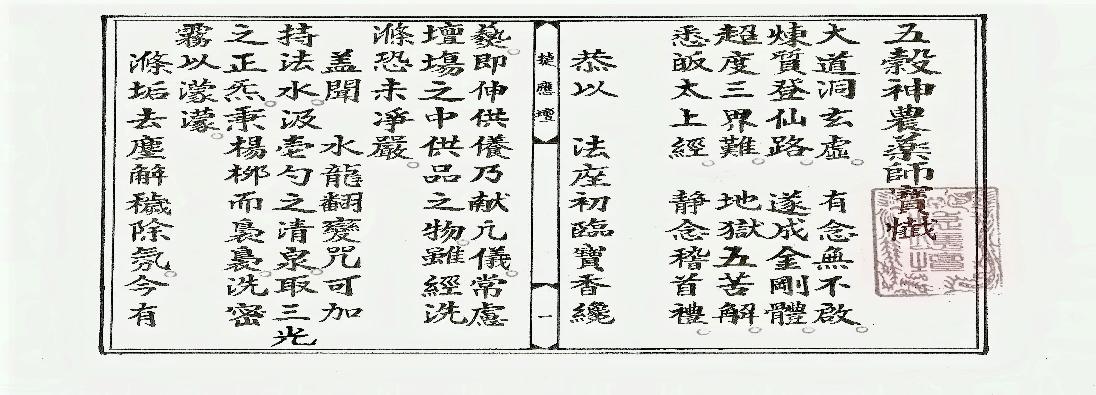 五穀神農藥師寶懺
大道洞玄虛　有念無不啟
煉質登仙路　遂成金剛體
超度三界難　地獄五苦解
悉皈太上經　靜念稽首禮
恭以　法座初臨寶香纔
捷應壇
一
爇即伸供儀乃献凢儀常慮
壇場之中供品之物雖經洗
滌恐未凈嚴
盖聞　水龍翻變咒可加
持法水汲壱勺之清泉取三光
之正炁秉楊栁而裊裊洗密
霧以濛濛
滌垢去塵解穢除氛今有